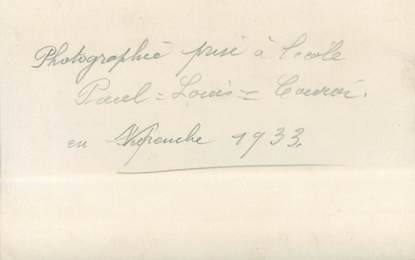 Photographie prise à l'école
Paul = Louis = Courier.
en 1933.